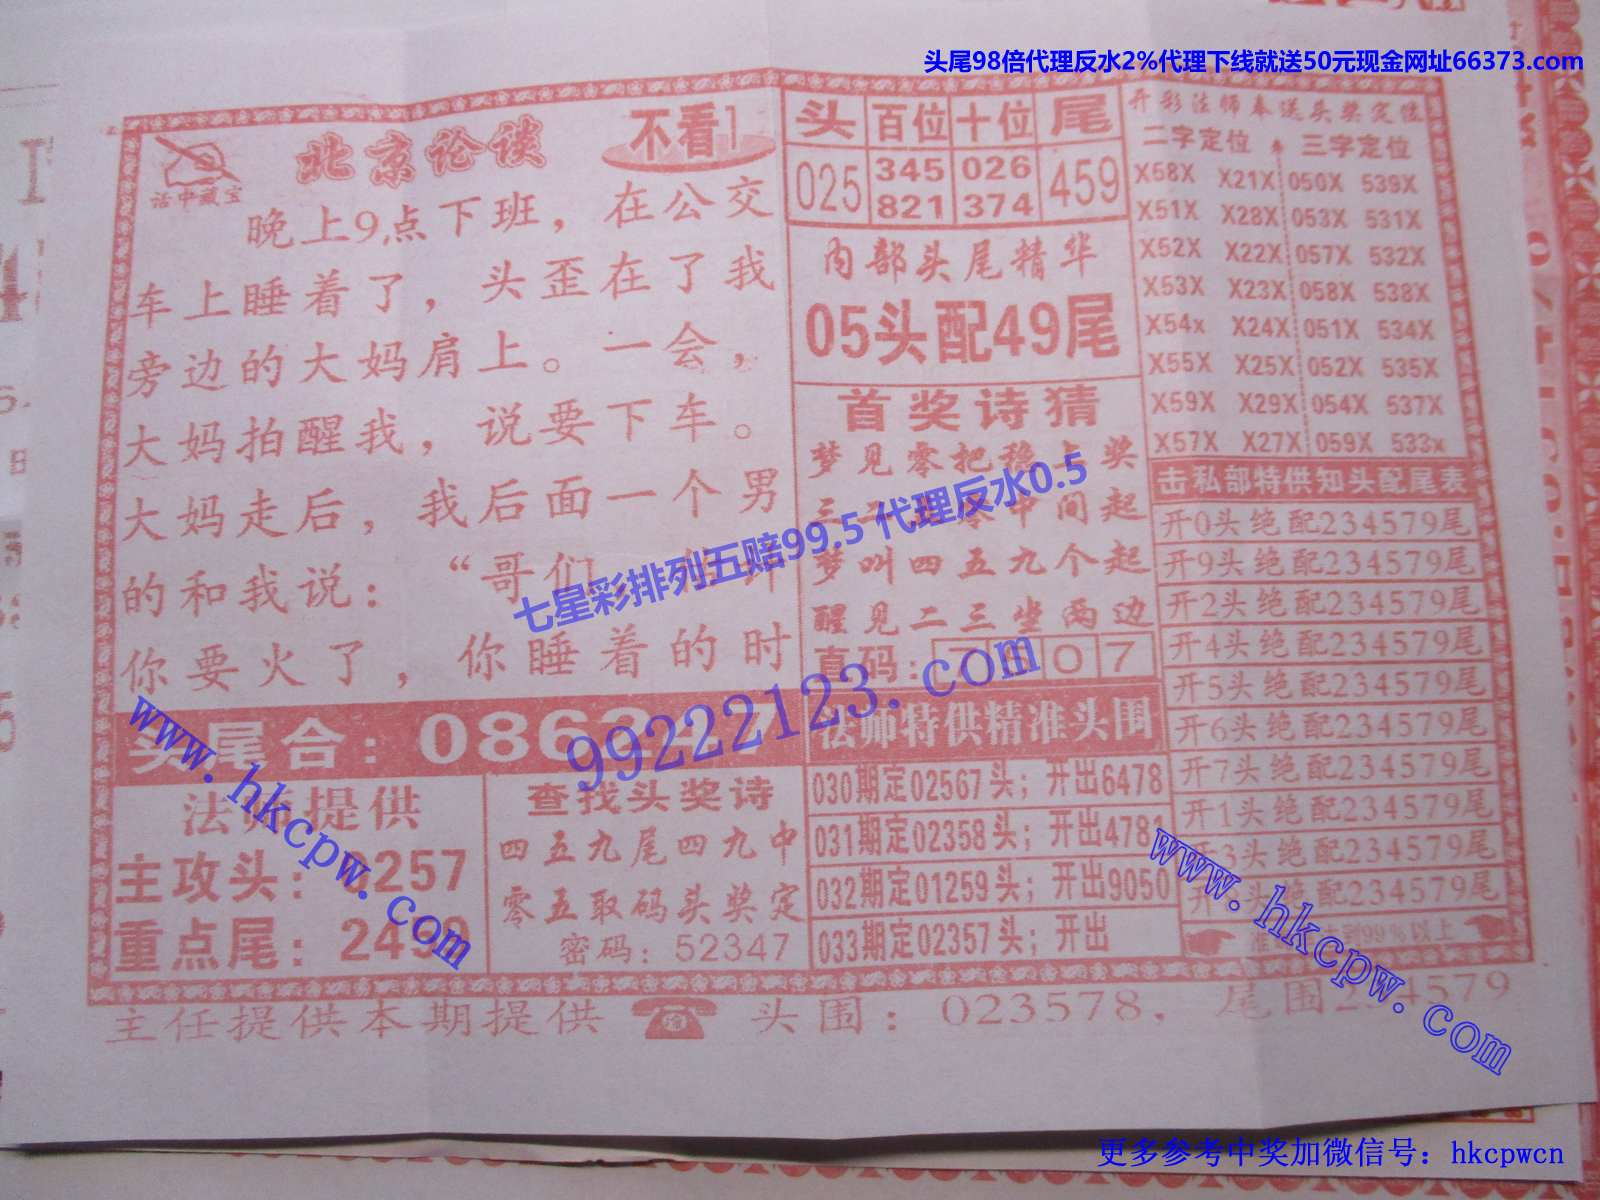 头尾98倍代理反水2%代理下线就送50元现金网址66373.com
话中藏宝
北京论谈
不看1
晚上9点下班，在公交
车上睡着了，头歪在了我
旁边的大妈肩上。一会，
大妈拍醒我，说要下车。
大妈走后，我后面一个男
的和我说：“哥们
你要火了，你睡着的时
头尾合：
法师提供
主攻头：0257
重点尾：2499
查找头奖诗
四五九尾四九中
零五取码头奖定
密码：52347
头 百位 十位 尾
025 345 026 459
821 374
内部头尾精华
05头配49尾
首奖诗猜
梦见零把稳上奖
中间起
梦叫四五九个起
醒见二三坐两边
真码：
法师特供精准头围
030期定02567头；开出6478
031期定02358头；开出4781
032期定01259头；开出9050
033期定02357头；开出
开彩法师奉送头奖定位
二字定位 三字定位
X58X X21X 050X 539X
X51X X28X 053X 531X
X52X X22X 057X 532X
X53X X23X 058X 538X
X54x X24X 051X 534X
X55X X25X 052X 535X
X59X X29X 054X 537X
X57X X27X 059X 533x
击私部特供知头配尾表
开0头绝配234579尾
开9头绝配234579尾
开2头绝配234579尾
开4头绝配234579尾
开5头绝配234579尾
开6头绝配234579尾
开7头绝配234579尾
开1头绝配234579尾
开3头绝配234579尾
头绝配234579尾
99%以上
主任提供本期提供 头围：023578，尾围234579
七星彩排列五赔99.5 代理反水0.5
99222123.com
www.hkcpw.com
www.hkcpw.com
更多参考中奖加微信号：hkcpwcn